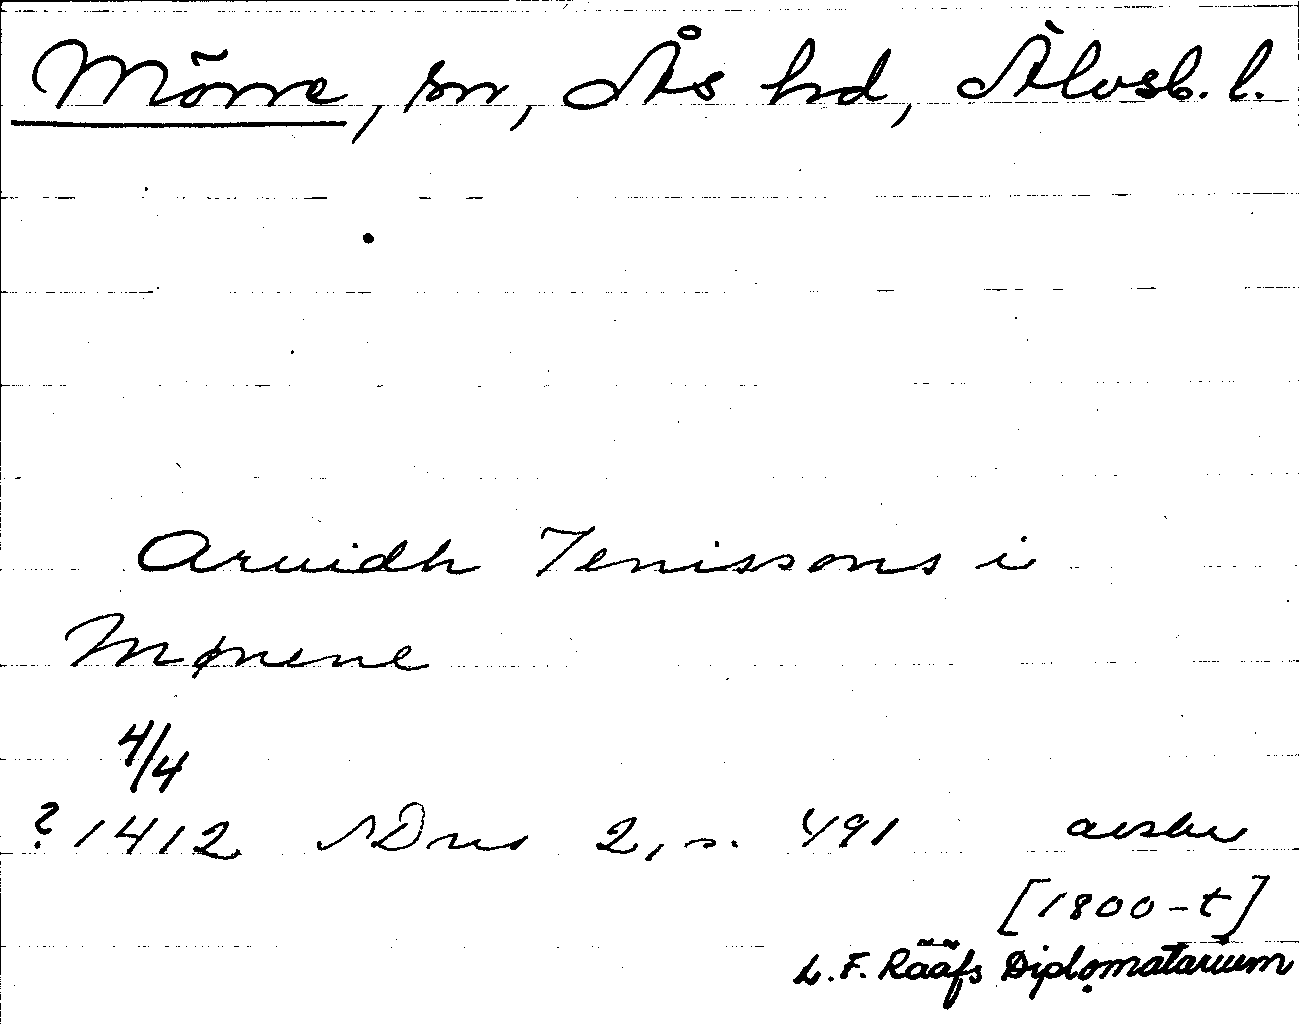 Mörre, sn, Ås hd, Älvsb. l.
Aruidh Tenissons i
Mønene
4/4
? 1412 SDns 2, s. 491 avskr
[1800-t]
L. F. Rääfs Diplomatarium